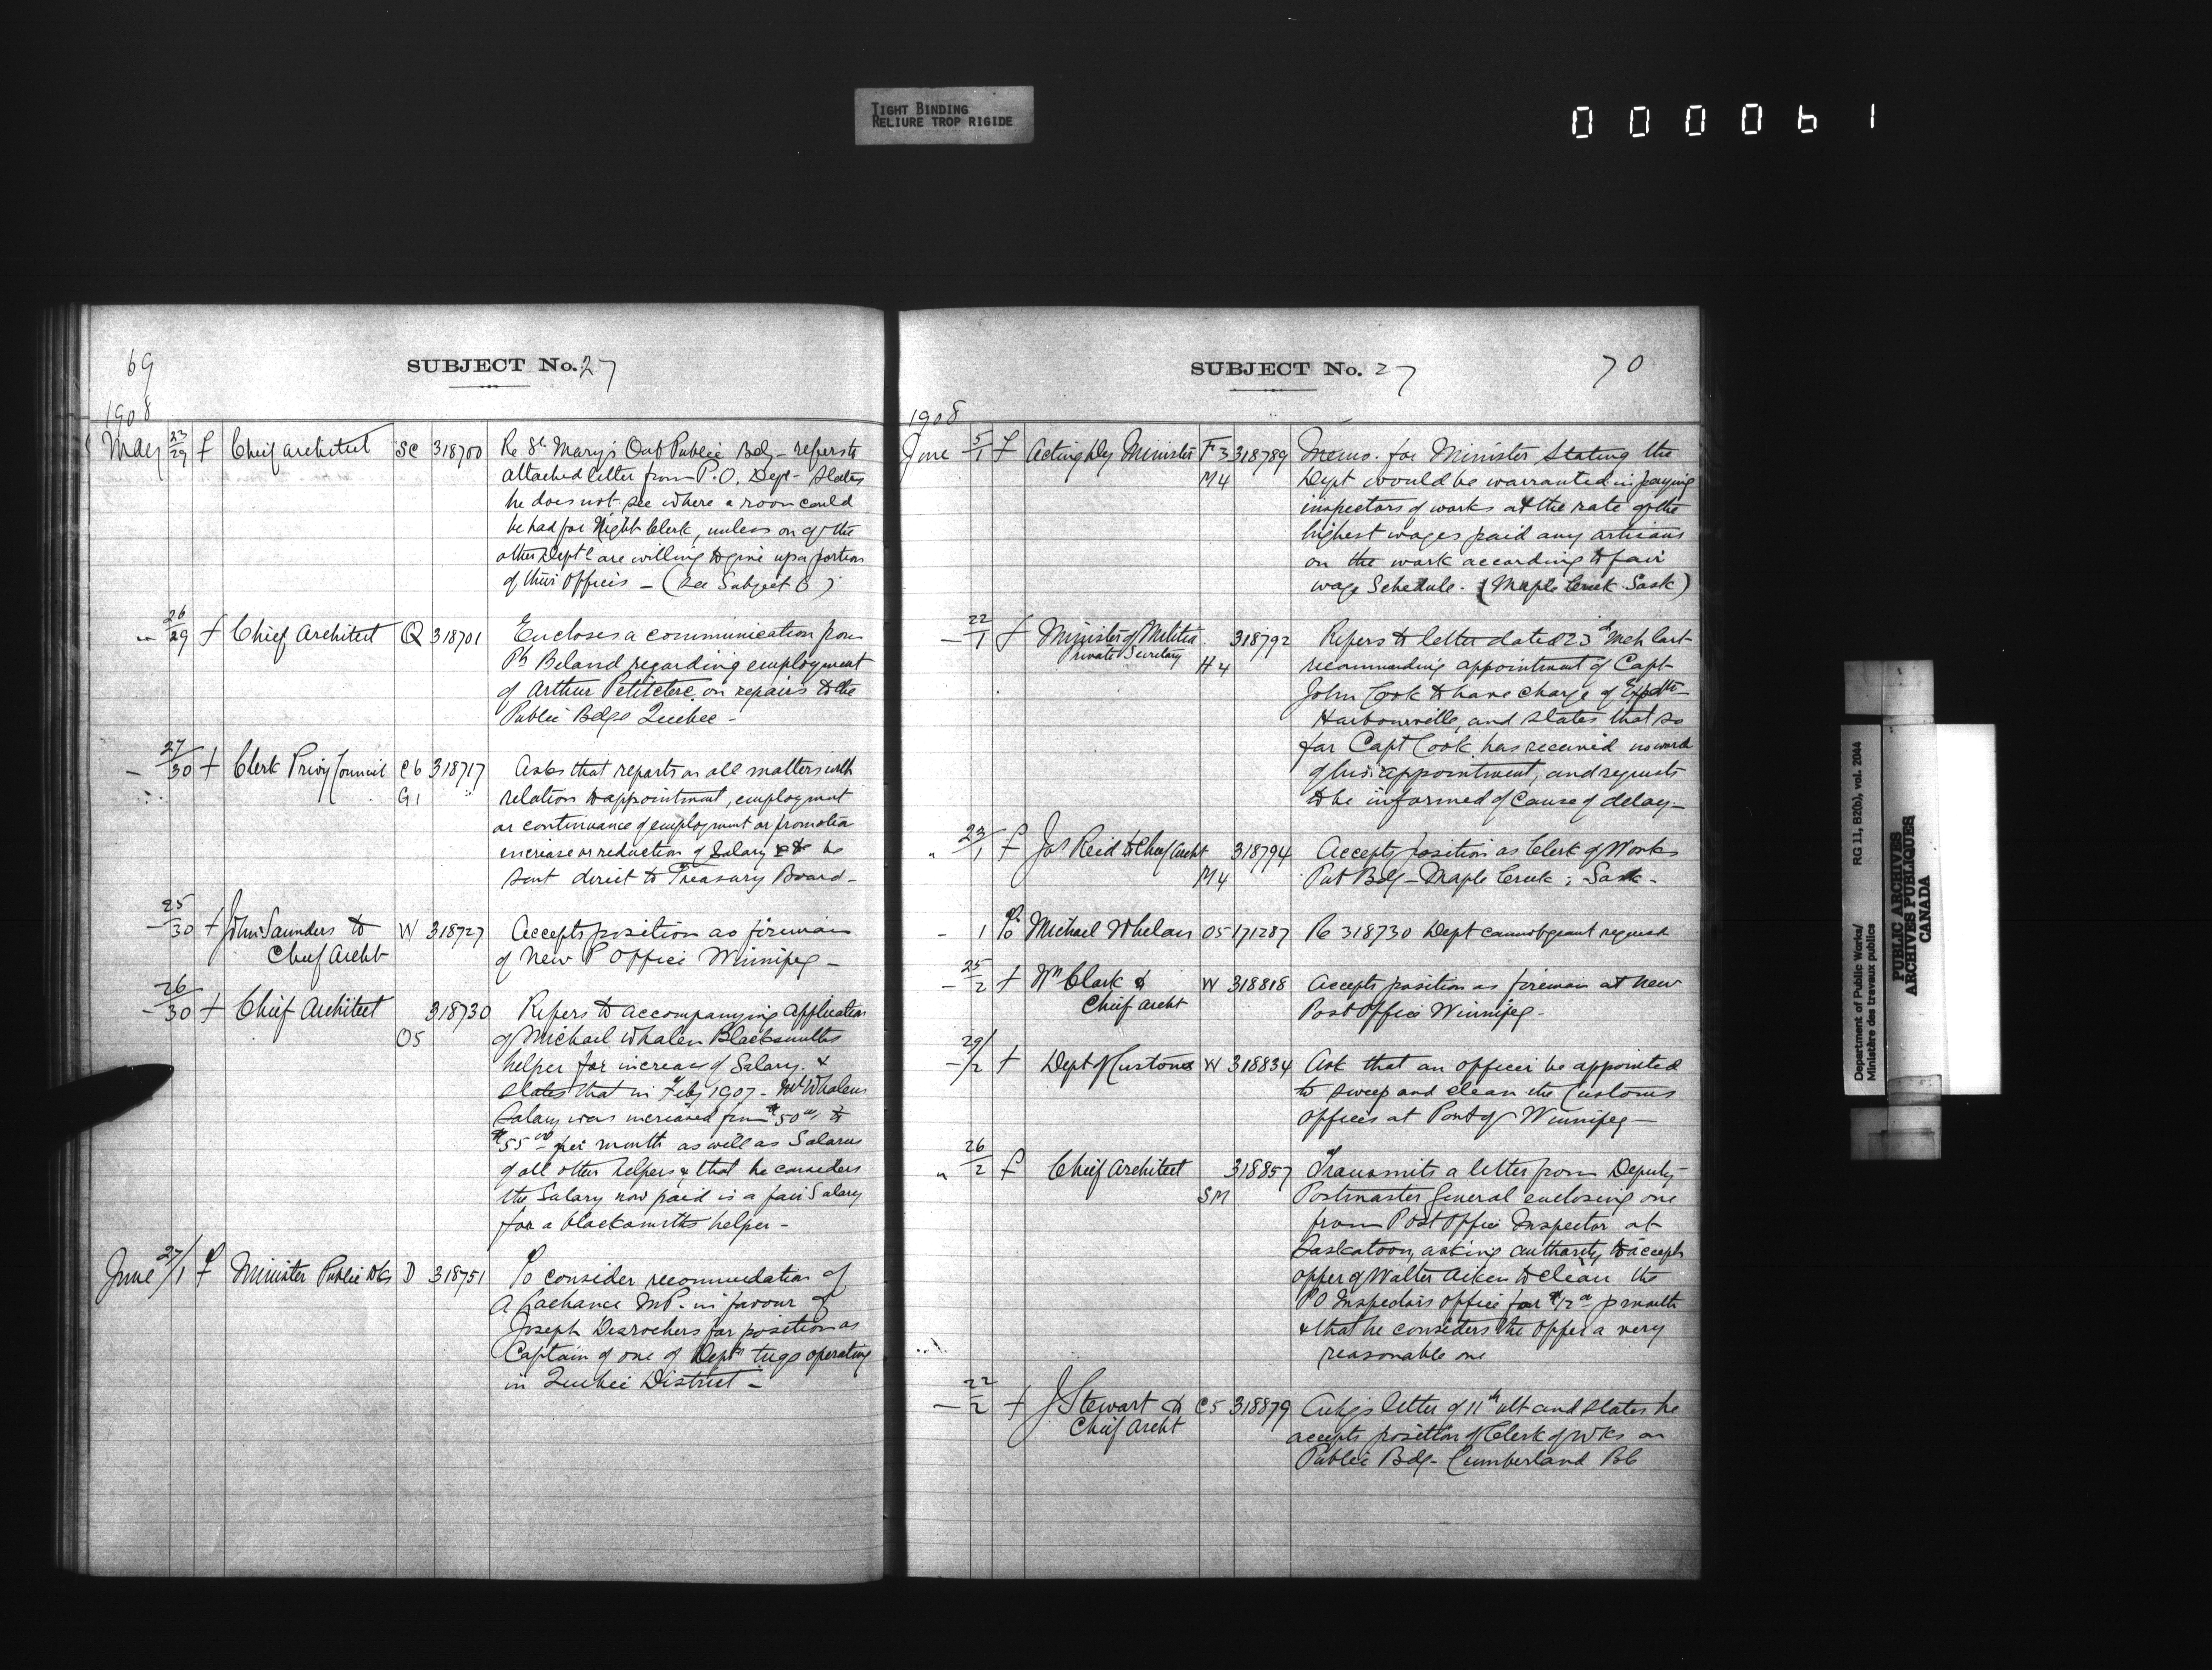 TIGHT BINDING
RELIURE TROP RIGIDE
000061
69
SUBJECT No. 27
1908
May 23/29 f Chief Architect SC 318700 Re St. Mary's Ont Public Bdg - refers to
attached letter from P.O. Dept - States
he does not see where a room could
be had for Night Clerk, unless on of the
other Depts are willing to give up a portion
of their offices - (See Subject 6)
" 26/29 f Chief Architect Q 318701 Encloses a communication from
Ph Beland regarding employment
of Arthur Petitclerc on repairs to the
Public Bdgs Quebec -
- 27/30 f Clerk Privy Council C6 318717 Asks that reports on all matters with
G1 relation to appointment, employment
or continuance of employment or promotion
increase or reduction of Salary be
sent direct to Treasury Board -
- 25/30 f John Saunders to W 318727 Accepts position as fireman
Chief Archt of New P Office Winnipeg -
- 26/30 f Chief Architect 318730 Refers to accompanying application
O5 of Michael Whalen Blacksmiths
helper for increase of Salary. &
states that in Feby 1907 - Mr Whalens
Salary was increased from $50 00 to
$55 00 per month as well as Salaries
of all other helpers & that he considers
the Salary now paid is a fair Salary
for a blacksmiths helper -
June 27/1 f Minister Public Wks D 318751 To consider recommendation of
A Lachance MP. in favour of
Joseph Desrochers for position as
Captain of one of Depts tugs operating
in Quebec District -
SUBJECT No. 27
70
1908
June 5/1 f Acting Dy Minister F3 318789 Memo. for Minister Stating the
M4 Dept would be warranted in paying
inspectors of works at the rate of the
highest wages paid any artisans
on the work according to fair
wage Schedule. (Maple Creek Sask)
- 22/1 f Minister of Militia 318792 Refers to letter dated 23d Mch last
Private Secretary
H4 recommending appointment of Capt
John Cook to have charge of
Harbourville, and states that so
far Capt Cook has received no word
of his appointment, and requests
to be informed of cause of delay -
" 23/1 f Jas Reid to Chief Archt 318794 Accepts position as Clerk of Works
M4 Pub Bdg - Maple Creek ; Sask -
- 1 To Michael Whelan O5 171287 Re 318730 Dept cannot grant request
- 25/2 f Wm Clark to W 318818 Accepts position as fireman at new
Chief Archt Post Office Winnipeg -
- 29/2 f Dept of Customs W 318834 Ask that an officer be appointed
to sweep and clean the Customs
offices at Port of Winnipeg -
" 26/2 f Chief Architect 318857 Transmits a letter from Deputy
SM Postmaster General enclosing one
from Post Office Inspector at
Saskatoon, asking authority to accept
offer of Walter Aiken to clean the
PO Inspectors office for $12 00 p month
& that he considers the offer a very
reasonable one
- 22/2 f J Stewart to C5 318879 Ackgs letter of 11th ult and states he
Chief Archt accepts position of Clerk of Wks on
Public Bdg - Cumberland BC
Department of Public Works/
Ministère des travaux publics
RG 11, B2(b), vol. 2044
PUBLIC ARCHIVES
ARCHIVES PUBLIQUES
CANADA